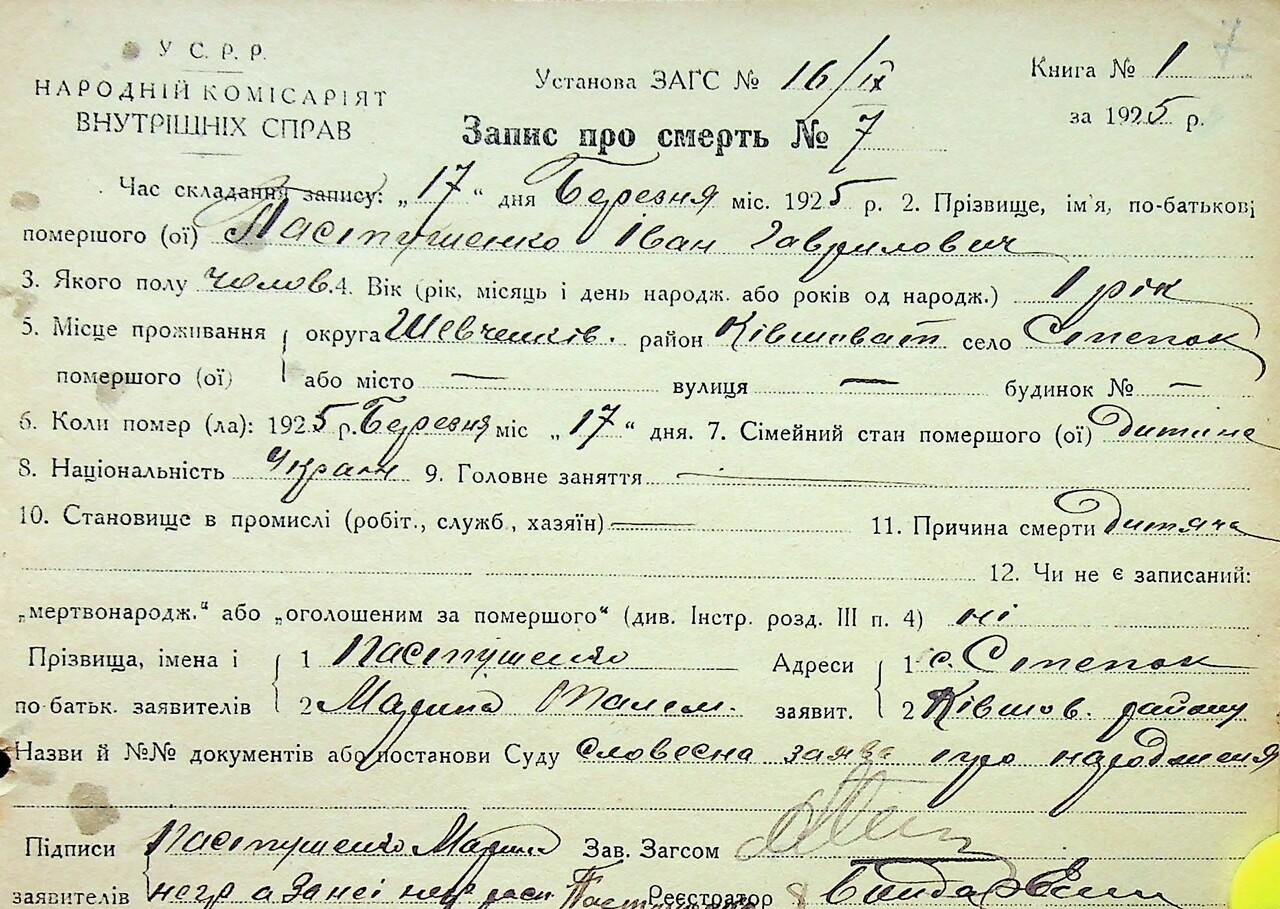 У С. Р. Р.
НАРОДНІЙ КОМІСАРІЯТ
ВНУТРІШНІХ СПРАВ
Установа ЗАГС № 16/IX
Книга № 1
за 1925 р.
7
Запис про смерть № 7
Час складання запису: „17“ дня Березня міс. 1925 р. 2. Прізвище, ім'я, по-батькові
помершого (ої) Пастушенко Іван Гаврилович
3. Якого полу чолов. 4. Вік (рік, місяць і день народж. або років од народж.) 1 рік
5. Місце проживання округа Шевченків. район Ківшоват село Степок
помершого (ої) або місто — вулиця — будинок № —
6. Коли помер (ла): 1925 р. Березня міс „17“ дня. 7. Сімейний стан помершого (ої) дитина
8. Національність Україн 9. Головне заняття —
10. Становище в промислі (робіт., служб., хазяїн) — 11. Причина смерти Дитяча
12. Чи не є записаний:
„мертвонародж.“ або „оголошеним за помершого“ (див. Інстр. розд. III п. 4) ні
Прізвища, імена і 1 Пастушенко Адреси 1 с. Степок
по-батьк. заявителів 2 Марина заявит. 2 Ківшов. району
Назви й №№ документів або постанови Суду словесна заява про народження
Підписи Пастушенко Марина Зав. Загсом
заявителів Реєстратор